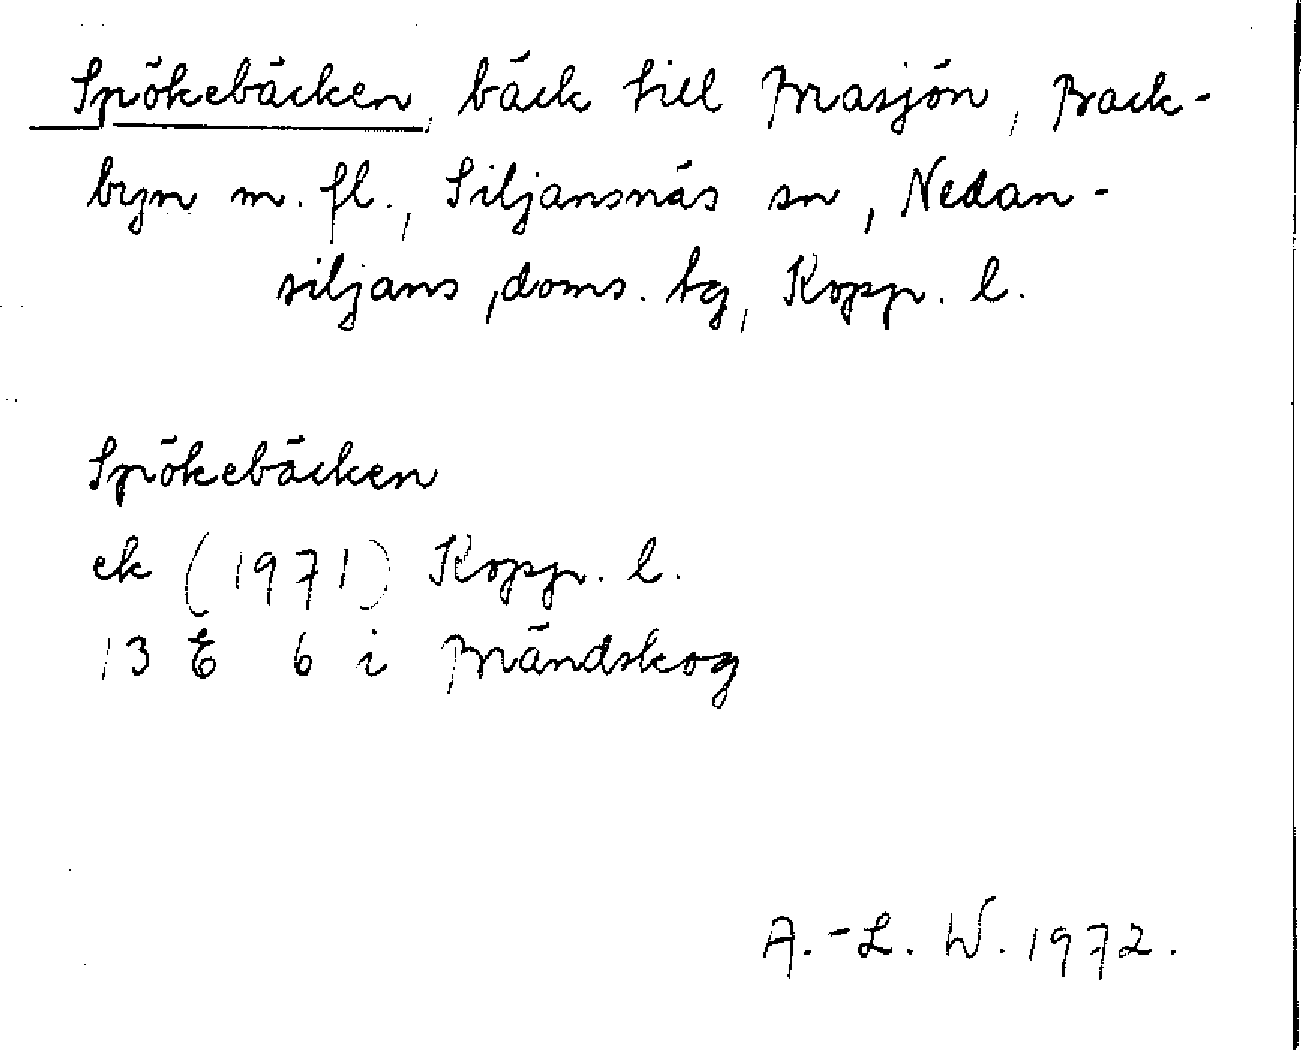 Spökebäcken, bäck till Brasjön, Back-
byn m. fl., Siljansnäs sn, Nedan-
siljans, doms. tg, Kopp. l.
Spökebäcken
ek (1971) Kopp. l.
13 E 6 i Brändskog
A.-L. W. 1972.